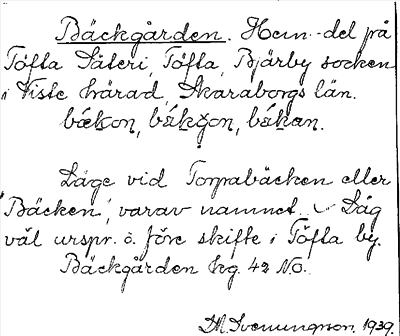 Bäckgården. Hem.-del på
Töfta Säteri, Töfta, Bjärby socken
i Viste härad, Skaraborgs län.
bǽkon, bǽkɡon, bǽkan.
Läge vid Torpabäcken eller
"Bäcken", varav namnet. Låg
väl urspr. ö. före skifte i Töfta by.
Bäckgården hg. 42 No.
D. Svenungson. 1939.